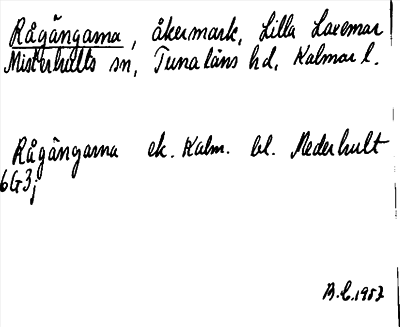 Rågångarna, åkermark, Lilla Laxemar
Misterhults sn, Tunaläns hd, Kalmar l.
Rågångarna ek. Kalm. bl. Mederhult
6G3j
B.L. 1957